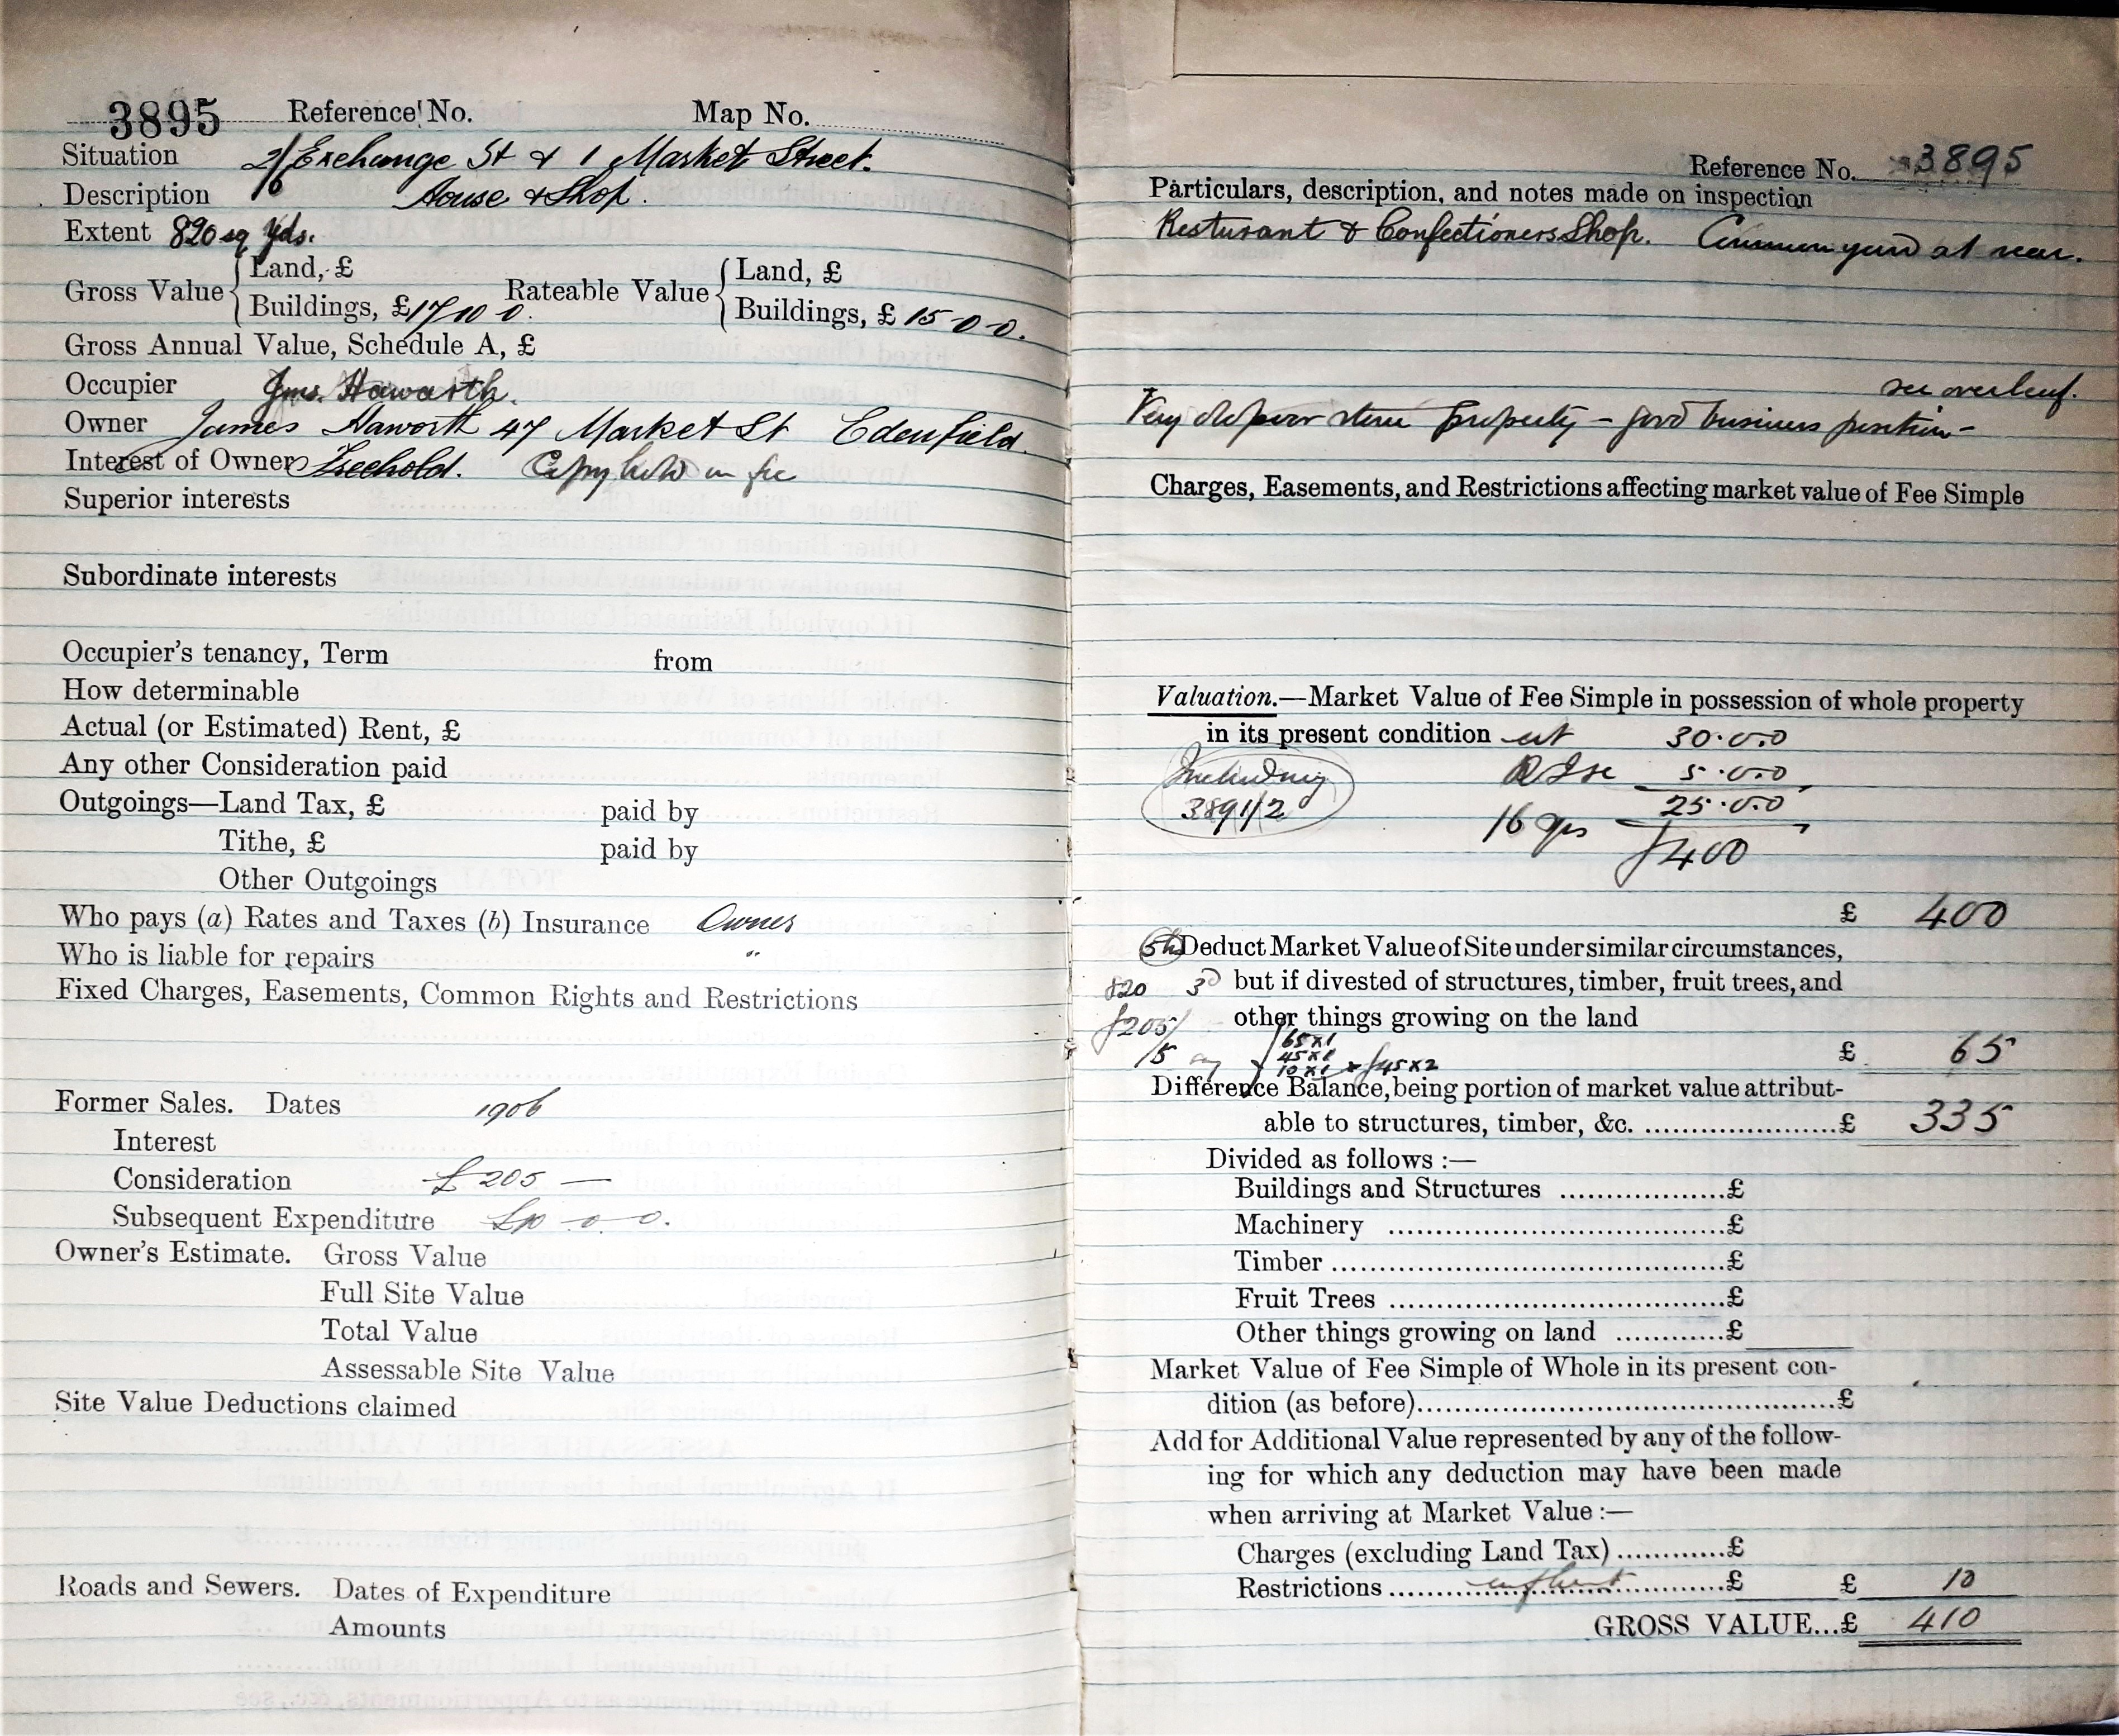 3895 Reference No. Map No.
Situation 2/6 Exchange St & 1 Market Street.
Description House & Shop.
Extent 820 sq yds.
Gross Value { Land, £ Rateable Value { Land, £
Buildings, £17 10 0. Buildings, £ 15-0-0.
Gross Annual Value, Schedule A, £
Occupier Jms. Haworth.
Owner James Haworth 47 Market St Edenfield.
Interest of Owner Freehold. Copyhold in fee
Superior interests
Subordinate interests
Occupier's tenancy, Term from
How determinable
Actual (or Estimated) Rent, £
Any other Consideration paid
Outgoings—Land Tax, £ paid by
Tithe, £ paid by
Other Outgoings
Who pays (a) Rates and Taxes (b) Insurance Owner
Who is liable for repairs "
Fixed Charges, Easements, Common Rights and Restrictions
Former Sales. Dates 1906
Interest
Consideration £205 —
Subsequent Expenditure £10-0-0.
Owner's Estimate. Gross Value
Full Site Value
Total Value
Assessable Site Value
Site Value Deductions claimed
Roads and Sewers. Dates of Expenditure
Amounts
Reference No. 3895
Particulars, description, and notes made on inspection
Resturant & Confectioners Shop. Common yard at rear.
see overleaf.
Very old poor stone property - good business position -
Charges, Easements, and Restrictions affecting market value of Fee Simple
Valuation.—Market Value of Fee Simple in possession of whole property
in its present condition 30.0.0
Including 5.0.0
3891/2 25.0.0
16 yrs £400
£ 400
Deduct Market Value of Site under similar circumstances,
820 3D but if divested of structures, timber, fruit trees, and
£205/ other things growing on the land
65x1
15 45x1 £ 65
10x1 £45x2
Difference Balance, being portion of market value attribut-
able to structures, timber, &c. ......................£ 335
Divided as follows :—
Buildings and Structures ...................£
Machinery ...................................£
Timber .........................................£
Fruit Trees ...................................£
Other things growing on land ............£
Market Value of Fee Simple of Whole in its present con-
dition (as before)..............................................£
Add for Additional Value represented by any of the follow-
ing for which any deduction may have been made
when arriving at Market Value :—
Charges (excluding Land Tax) ............£
Restrictions ...................................£ £ 10
GROSS VALUE...£ 410